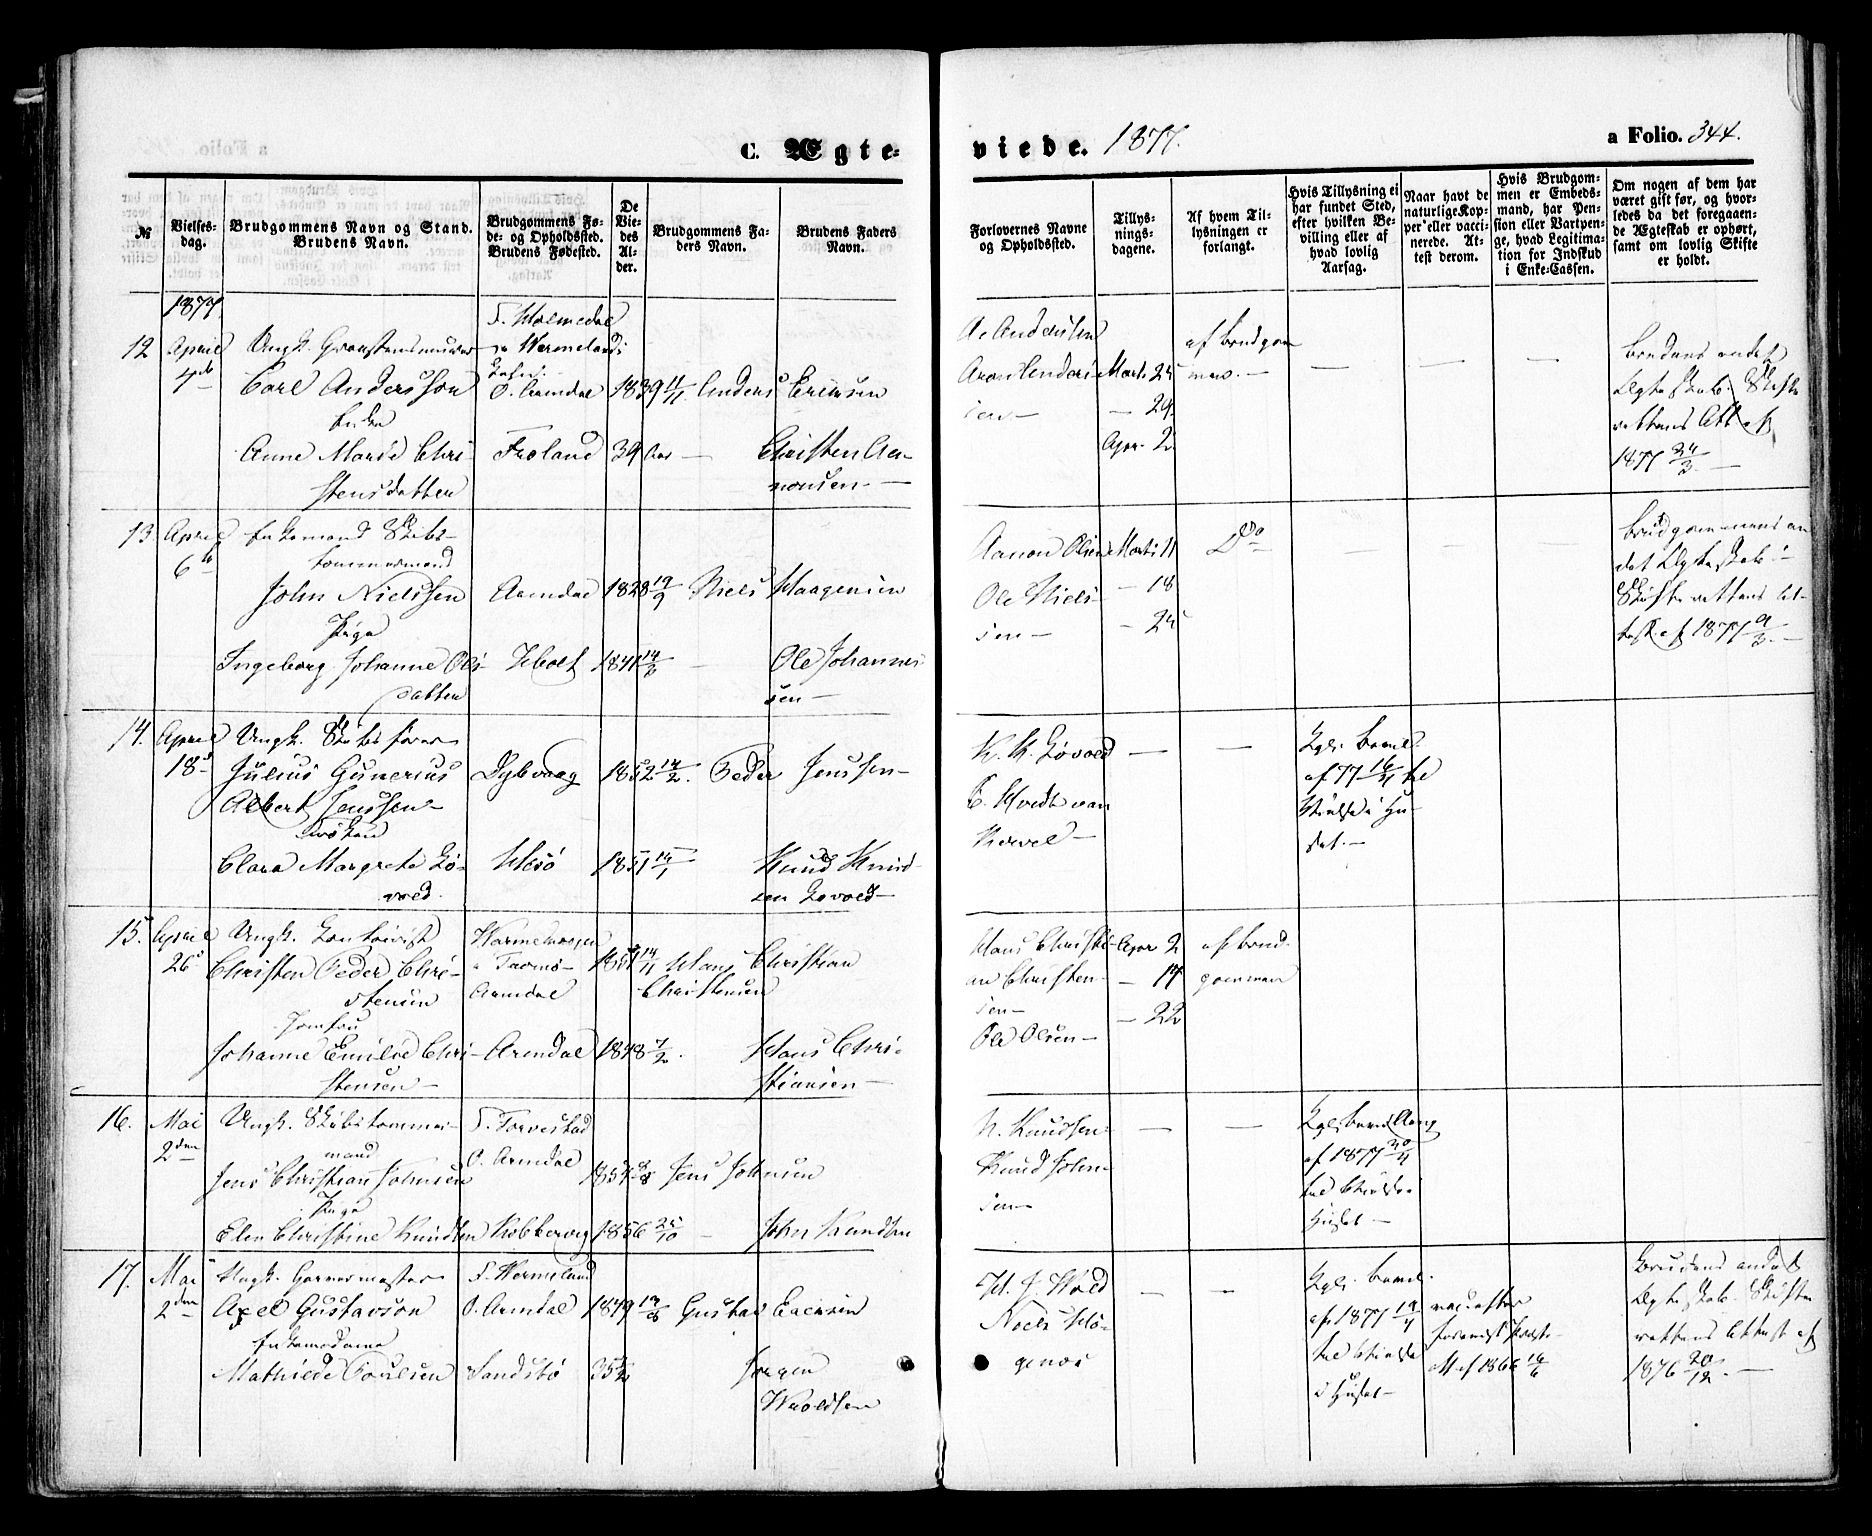 C. Ægte-
viede. 1877.
a Folio. 344.
№
Vielses-
dag.
Brudgommens Navn og Stand.
Brudens Navn.
Brudgommens Fø-
de- og Opholdssted.
Brudens Fødested.
De
Vie-
des
Al-
der.
Brudgommens Fa-
ders Navn.
Brudens Faders
Navn.
Forlovernes Navne
og Opholdssted.
Tillys-
nings-
dagene.
Af hvem Til-
lysningen er
forlangt.
Hvis Tillysning ei
har fundet Sted,
efter hvilken Be-
villing eller af
hvad lovlig
Aarsag.
Naar havt de
naturlige Kop-
per eller vacci-
nerede. At-
test derom.
Hvis Brudgom-
men er Embeds-
mand, har Pen-
sion eller Vartpen-
ge, hvad Legitima-
tion for Indskud
i Enke-Cassen.
Om nogen af dem har
været gift før, og hvor-
ledes da det foregaaen-
de Ægteskab er ophørt,
samt om lovlig Skifte
er holdt.
1877
12 April
4de
Ungk.
Carl Andersson
Enke
Anne Marie Chri-
stensdatter
F. Holmedal
O. Arendal
Froland
1839 11/11
39 Aar —
Anders Ericksen
Christen Aa-
nonsen —
A. Andersen
Marts 25
— 29
Apr. 2
af Brudgom-
men. —
Brudens andet
Ægteskab. Skifte-
rettens Att. af
1877 24/3 —
13 April
6te
Enkemand Skibs-
tømmermand
John Nielssen
Pige
Ingeborg Johanne Ols-
datter
Arendal
Holt
1828 19/9
1841 14/6
Niels Haagensen
Ole Johannes-
sen —
Aanon Olsen
Ole Niels-
sen —
Marts 11
— 18
— 25
Do
Brudgommens an-
det Ægteskab.
Skifterettens At-
test af 1877 9/3 —
14. April
18de
Ungk. Skibsfører
Julius Gunerius
Albert Jenssen —
Frøken
Clara Margrete Lø-
vold.
Dybvaag
Hisø
1852 14/2.
1851 14/1
Peder Jenssen —
Knud Knud-
sen Løvold —
K. K. Løvold
Kgl. Bevil.
af 77 16/4 til
Vielse i Hu-
set. —
15. April
26de
Ungk.
Christen Peder Chri-
stensen
Jomfru
Johanne Emilie Chri-
stensen —
Tromø —
Arendal
Arendal
1851 14/11
1848 7/2.
Hans Christian
Christensen
Hans Chri-
stiansen —
Hans Christi-
an Christen-
sen —
Ole Olsen —
Apr 2
— 17
— 22
af Brud-
gommen
16. Mai
2den
Ungk. Skibstømmer-
mand
Jens Christian Johnsen
Pige
Elen Christine Knudsen
F. Torvestad
O. Arendal
Kobbervig
1856 25/10
Jens Johnsen
John Knudsen
N. Knudsen
Knud John-
sen —
af 1877 30/4
til Vielse i
Huset —
17. Mai
2den
Ungk. Garvermester
Axel Gustavson
Enkemadame
Mathilde Poulsen
F. Wermeland
O. Arendal
Sandviks
1849 13/8
Gustav Ericksen
Jørgen
Kgl. Bevil.
af 1877 19/4
til Vielse
i Huset —
vac. efter
af 1866 16/6
Brudens andet
Ægteskab. Skifte-
rettens Attest af
1876 20/12. —